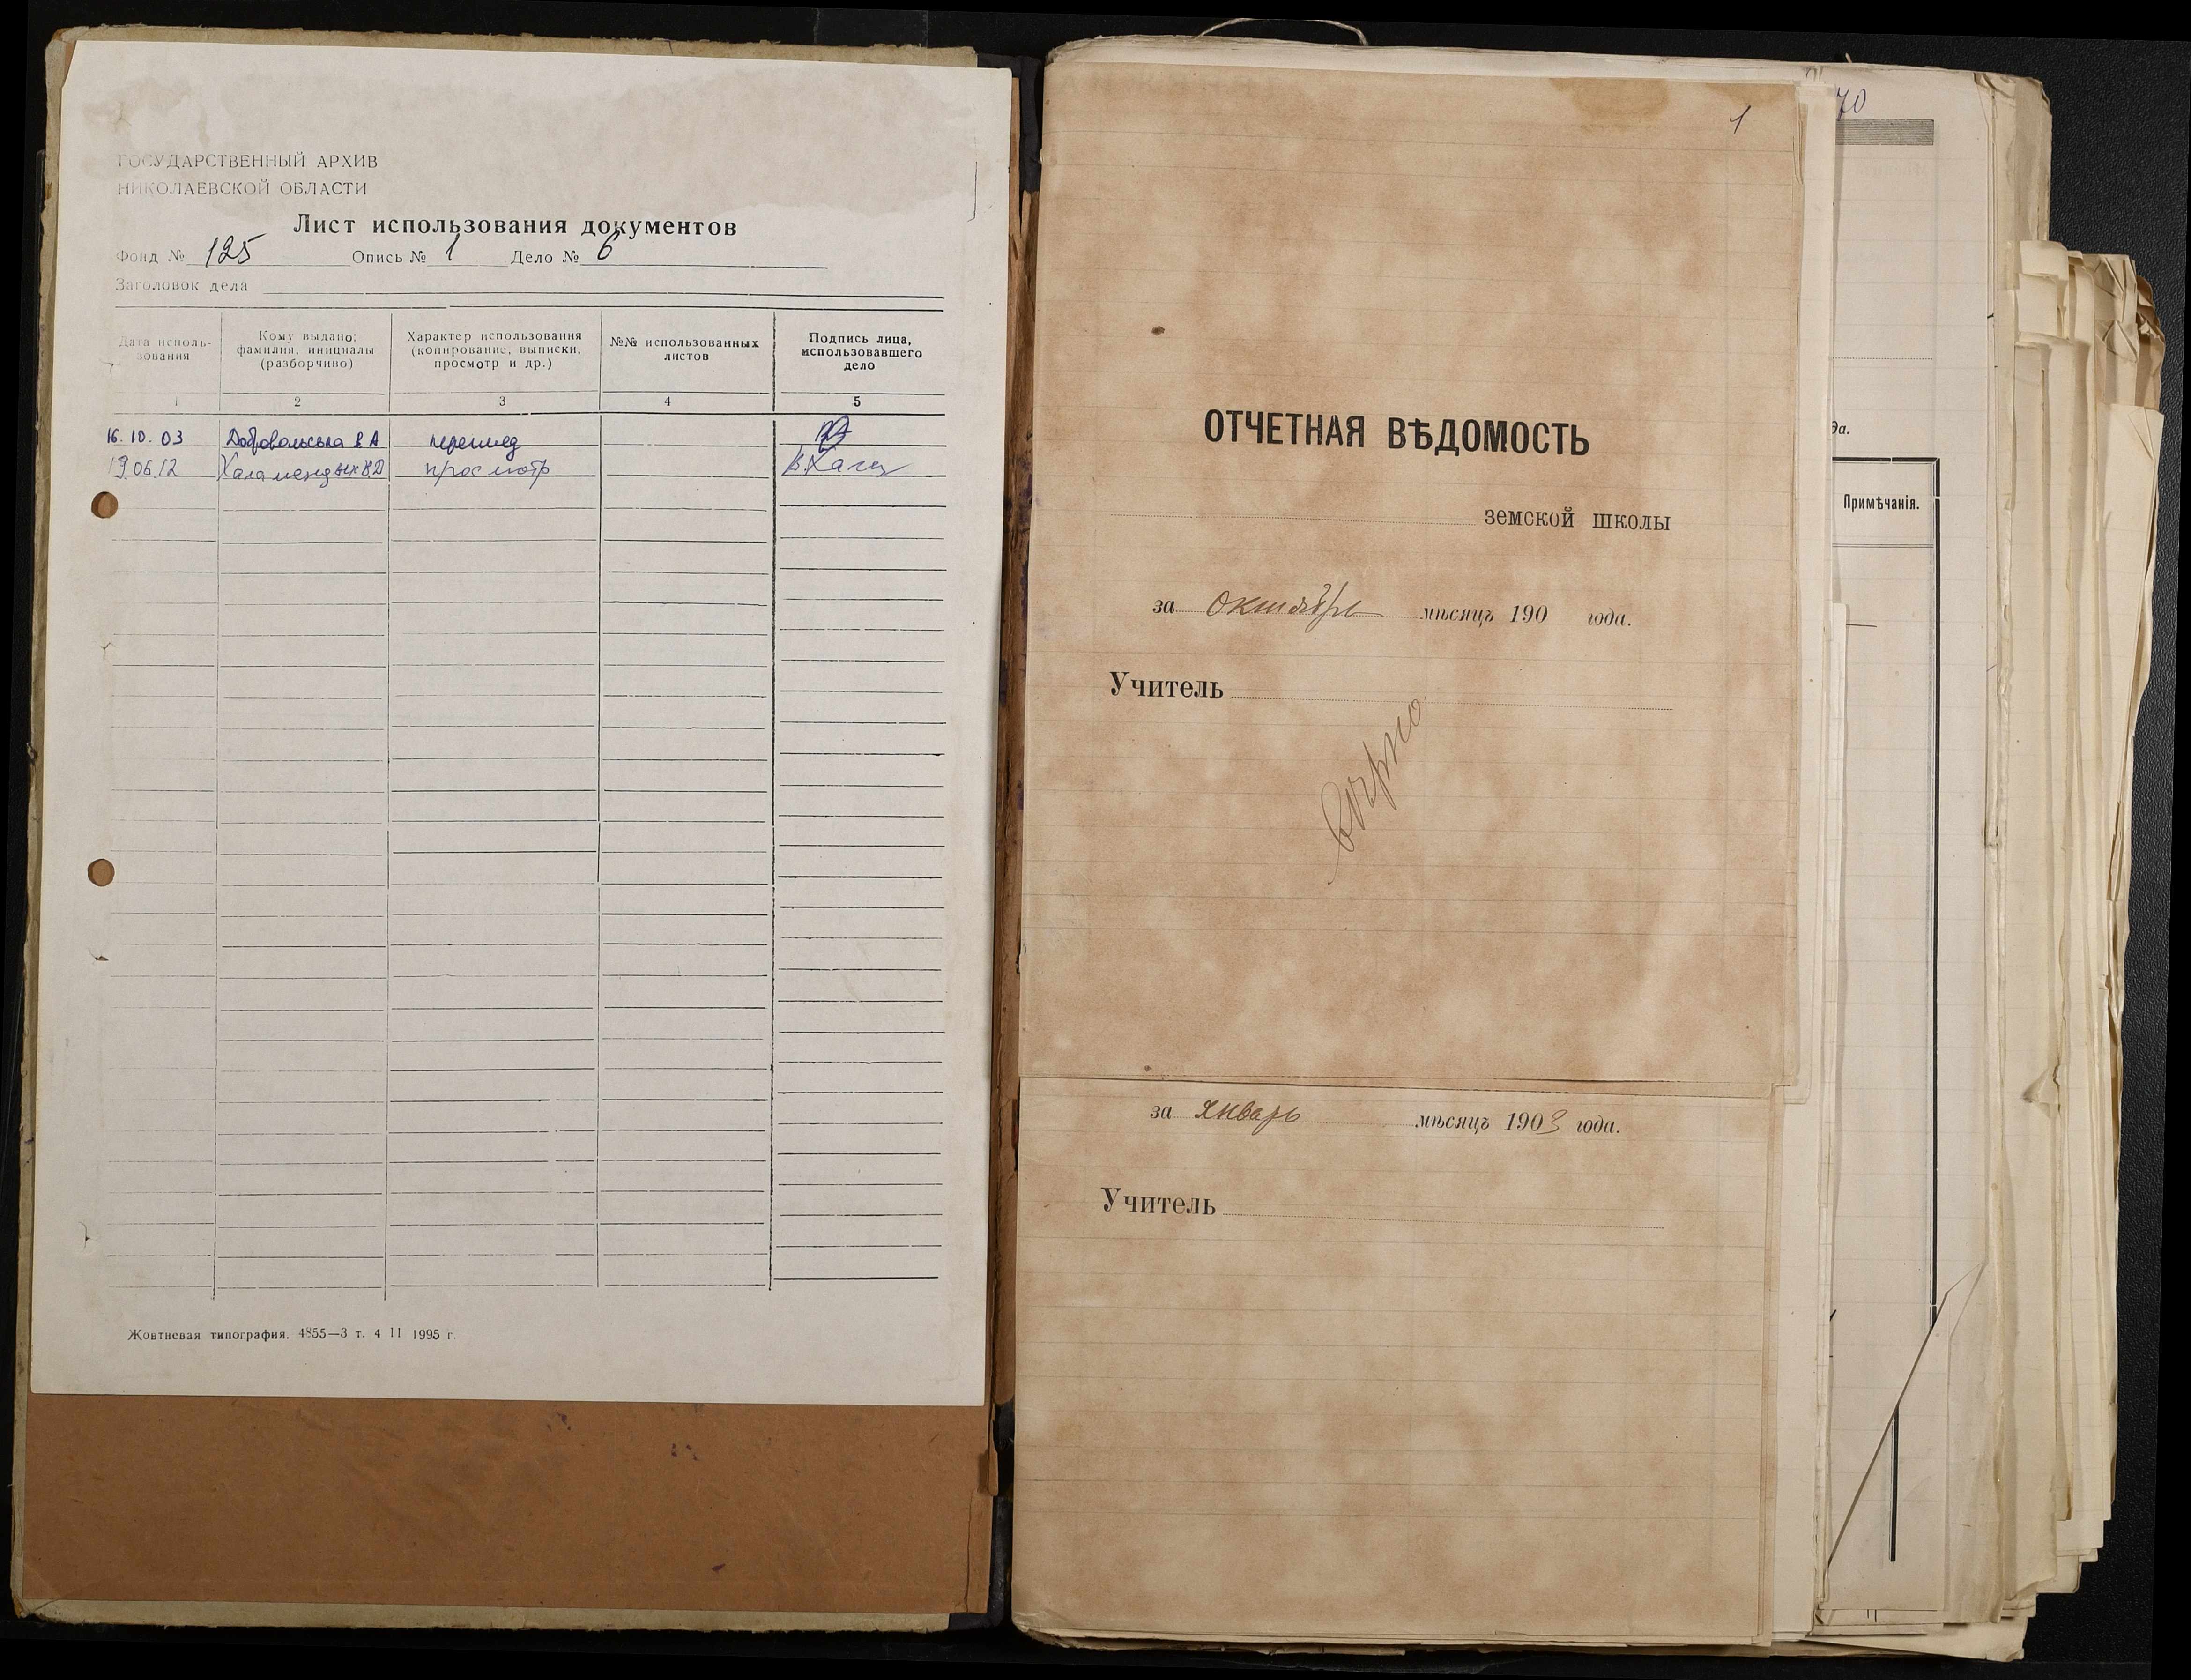 ГОСУДАРСТВЕННЫЙ АРХИВ
НИКОЛАЕВСКОЙ ОБЛАСТИ
Лист использования документов
Фонд № 125 Опись № 1 Дело № 6
Заголовок дела
Дата исполь-
зования
Кому выдано:
фамилия, инициалы
(разборчиво)
Характер использования
(копирование, выписки,
просмотр и др.)
№№ использованных
листов
Подпись лица,
использовавшего
дело
1 2 3 4 5
16.10.03 Добровольська В А перегляд
19 06 12 просмотр
Жовтневая типография. 4855—3 т. 4 11 1995 г.
1
ОТЧЕТНАЯ ВѢДОМОСТЬ
земской школы
за октябрь мѣсяцъ 190 года.
Учитель
за Январь мѣсяцъ 1903 года.
Учитель
70
да.
Примѣчанія.